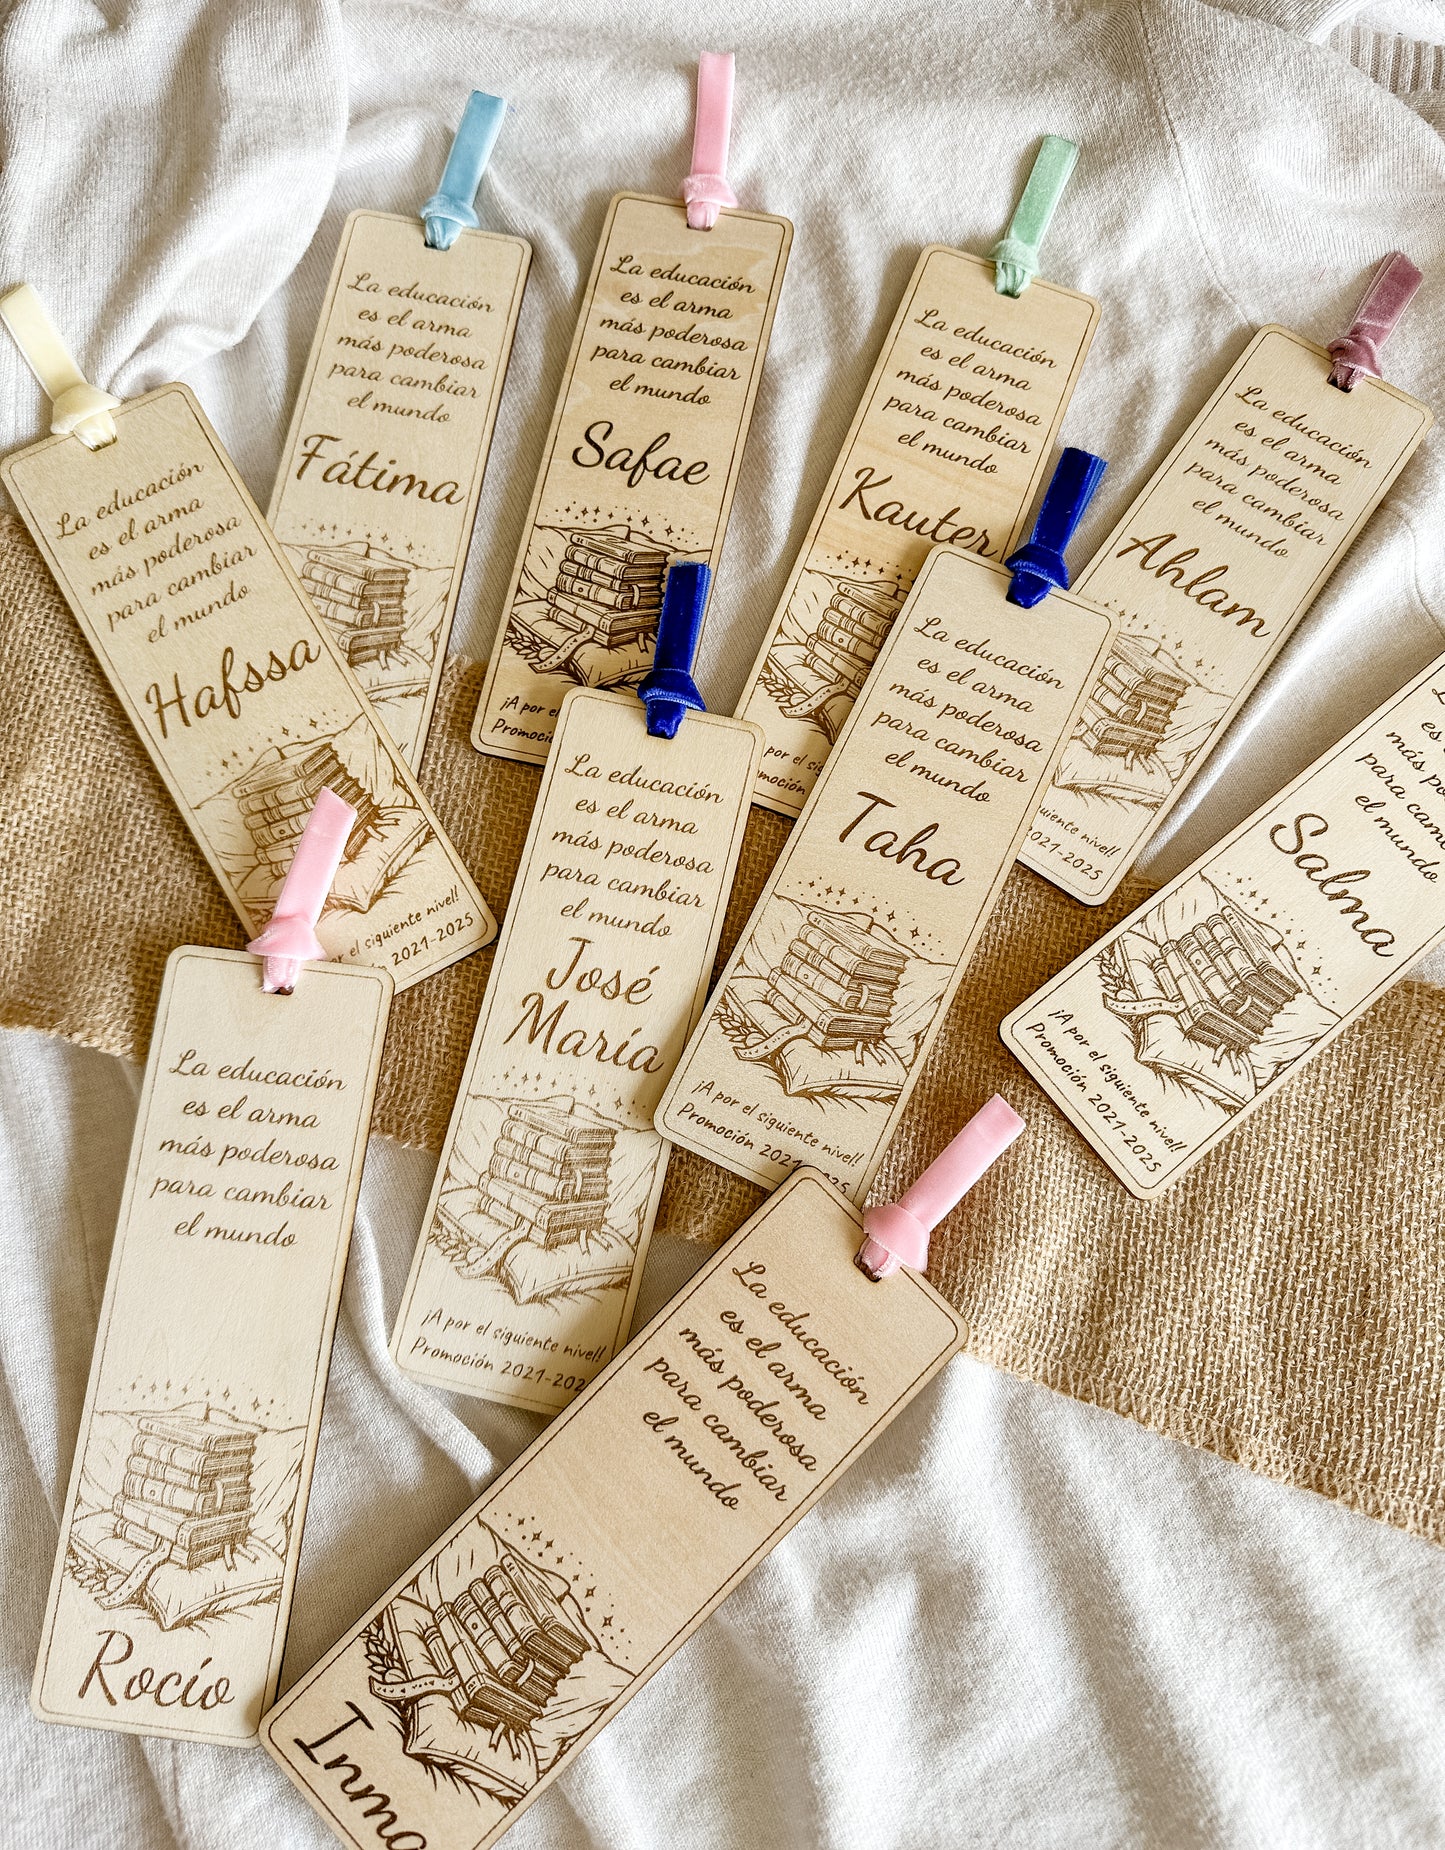 La educación
es el arma
más poderosa
para cambiar
el mundo
Fátima
La educación
es el arma
más poderosa
para cambiar
el mundo
Safae
¡A por el
La educación
es el arma
más poderosa
para cambiar
el mundo
Kauter
por el
La educación
es el arma
más poderosa
para cambiar
el mundo
Ahlam
siguiente nivel!
2021-2025
La educación
es el arma
más poderosa
para cambiar
el mundo
Hafssa
el siguiente nivel!
2021-2025
La educación
es el arma
más poderosa
para cambiar
el mundo
José
María
¡A por el siguiente nivel!
Promoción 2021-202
La educación
es el arma
más poderosa
para cambiar
el mundo
Taha
¡A por el siguiente nivel!
Promoción 2021-2025
es
más po
para camb
el mundo
Salma
¡A por el siguiente nivel!
Promoción 2021-2025
La educación
es el arma
más poderosa
para cambiar
el mundo
Rocío
La educación
es el arma
más poderosa
para cambiar
el mundo
Inma